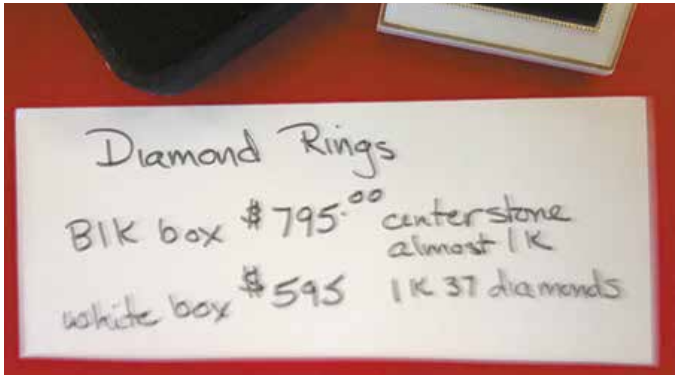 Diamond Rings
Blk box $795.00 centerstone
almost 1K
white box $595 1K 37 diamonds